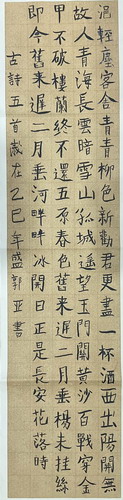 浥輕塵客舍青青柳色新勸君更盡一杯酒西出陽關無
故人青海長雲暗雪山孤城遙望玉門關黃沙百戰穿金
甲不破樓蘭終不還五原春色舊來遲二月垂楊未挂絲
即今舊來遲二月垂河畔畔冰開日正是長安花落時
古詩五首歲在乙巳年盛郭亞書